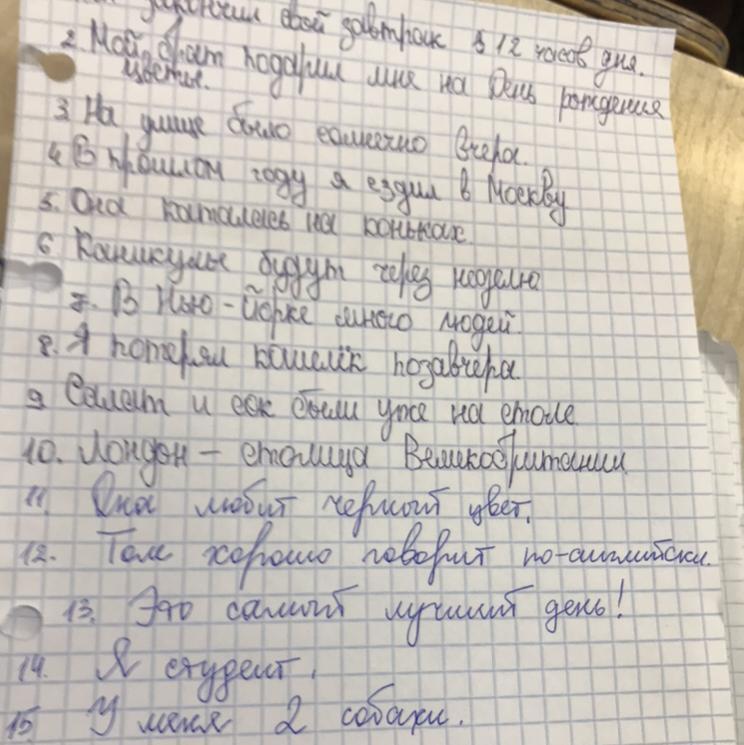 закончил свой завтрак в 12 часов дня.
2. Мой брат подарил мне на День рождения
цветы.
3. На улице было солнечно вчера.
4. В прошлом году я ездил в Москву
5. Она каталась на коньках.
6. Каникулы будут через неделю
7. В Нью-Йорке много людей.
8. Я потерял кошелёк позавчера.
9 Салат и сок были уже на столе
10. Лондон – столица Великобритании
11. Она любит черный цвет.
12. Том хорошо говорит по-английски.
13. Это самый лучший день!
14. Я студент.
15 У меня 2 собаки.